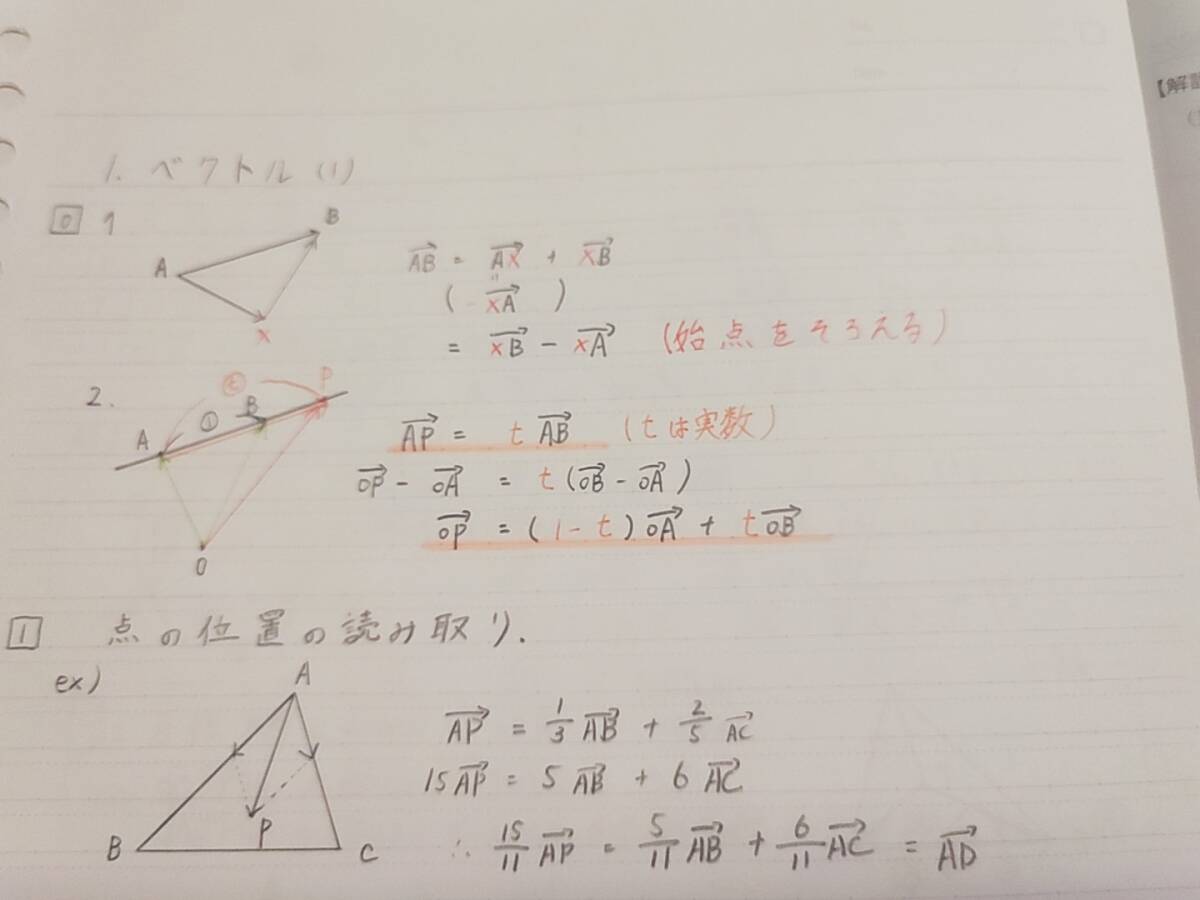 1. ベクトル(1)
0 1
A B X
AB→ = AX→ + XB→
(-XA→)
= XB→ - XA→ (始点をそろえる)
2.
A ① B ⓣ P O
AP→ = tAB→ (tは実数)
OP→ - OA→ = t(OB→ - OA→)
OP→ = (1-t)OA→ + tOB→
1 点の位置の読み取り.
ex)
A B P C
AP→ = 1/3 AB→ + 2/5 AC→
15AP→ = 5AB→ + 6AC→
∴ 15/11 AP→ = 5/11 AB→ + 6/11 AC→ = AD→